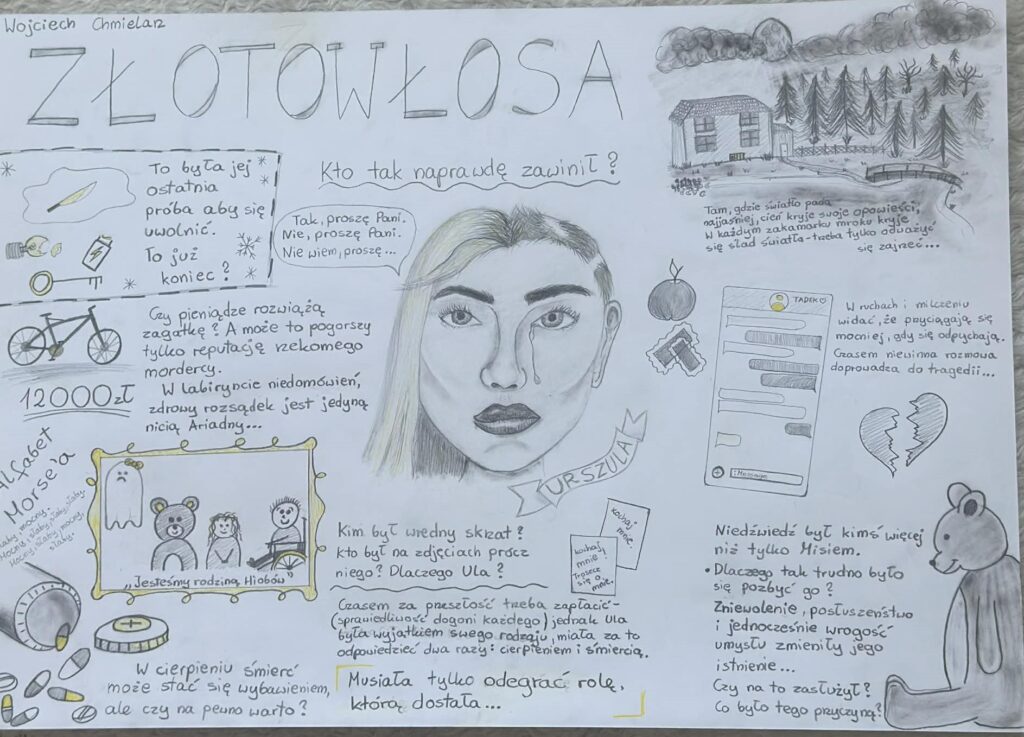 Wojciech Chmielarz
ZŁOTOWŁOSA
Kto tak naprawdę zawinił?
To była jej
ostatnia
próba aby się
uwolnić.
To już
koniec?
Tak, proszę Pani.
Nie, proszę Pani.
Nie wiem, proszę...
Tam, gdzie światło pada
najjaśniej, cień kryje swoje opowieści,
W każdym zakamarku mroku kryje
się ślad światła-trzeba tylko odważyć
się zajrzeć...
Czy pieniądze rozwiążą
zagatkę? A może to pogorszy
tylko reputację rzekomego
mordercy.
W labiryncie niedomówień,
zdrowy rozsądek jest jedyną
nicią Ariadny...
12000zł
TADEK
W ruchach i milczeniu
widać, że przyciągają się
mocniej, gdy się odpychają.
Czasem niewinna rozmowa
doprowadza do tragedii...
Message
URSZULA
Alfabet
Morse'a
słaby, mocny.
Mocny, słaby, słaby, słaby.
Mocny, słaby, mocny,
słaby.
„Jesteśmy rodziną Hiobów"
Kim był wredny skizat?
kto był na zdjęciach prócz
niego? Dlaczego Ula?
kochaj
mnie.
kochaj
mnie!
Troszcz
się o
mnie.
Czasem za przeszłość trzeba zapłacić-
(sprawiedliwość dogoni każdego) jednak Ula
była wyjątkiem swego rodzaju, miała za to
odpowiedzieć dwa razy: cierpieniem i śmiercią.
Musiała tylko odegrać rolę,
którą dostała...
W cierpieniu śmierć
może stać się wybawieniem,
ale czy na pewno warto?
Niedźwiedź był kimś więcej
niż tylko Misiem.
• Dlaczego tak trudno było
się pozbyć go?
Zniewolenie, posłuszeństwo
i jednocześnie wrogość
umysłu zmieniły jego
istnienie...
Czy na to zasłużył?
Co było tego przyczyną?